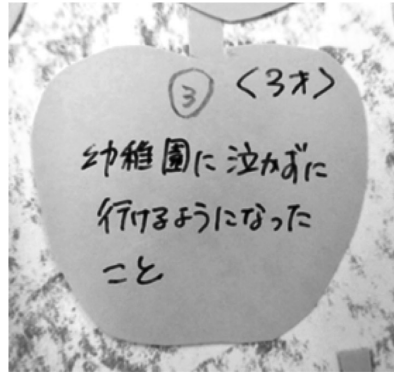 ③ <3才>
幼稚園に泣かずに
行けるようになった
こと